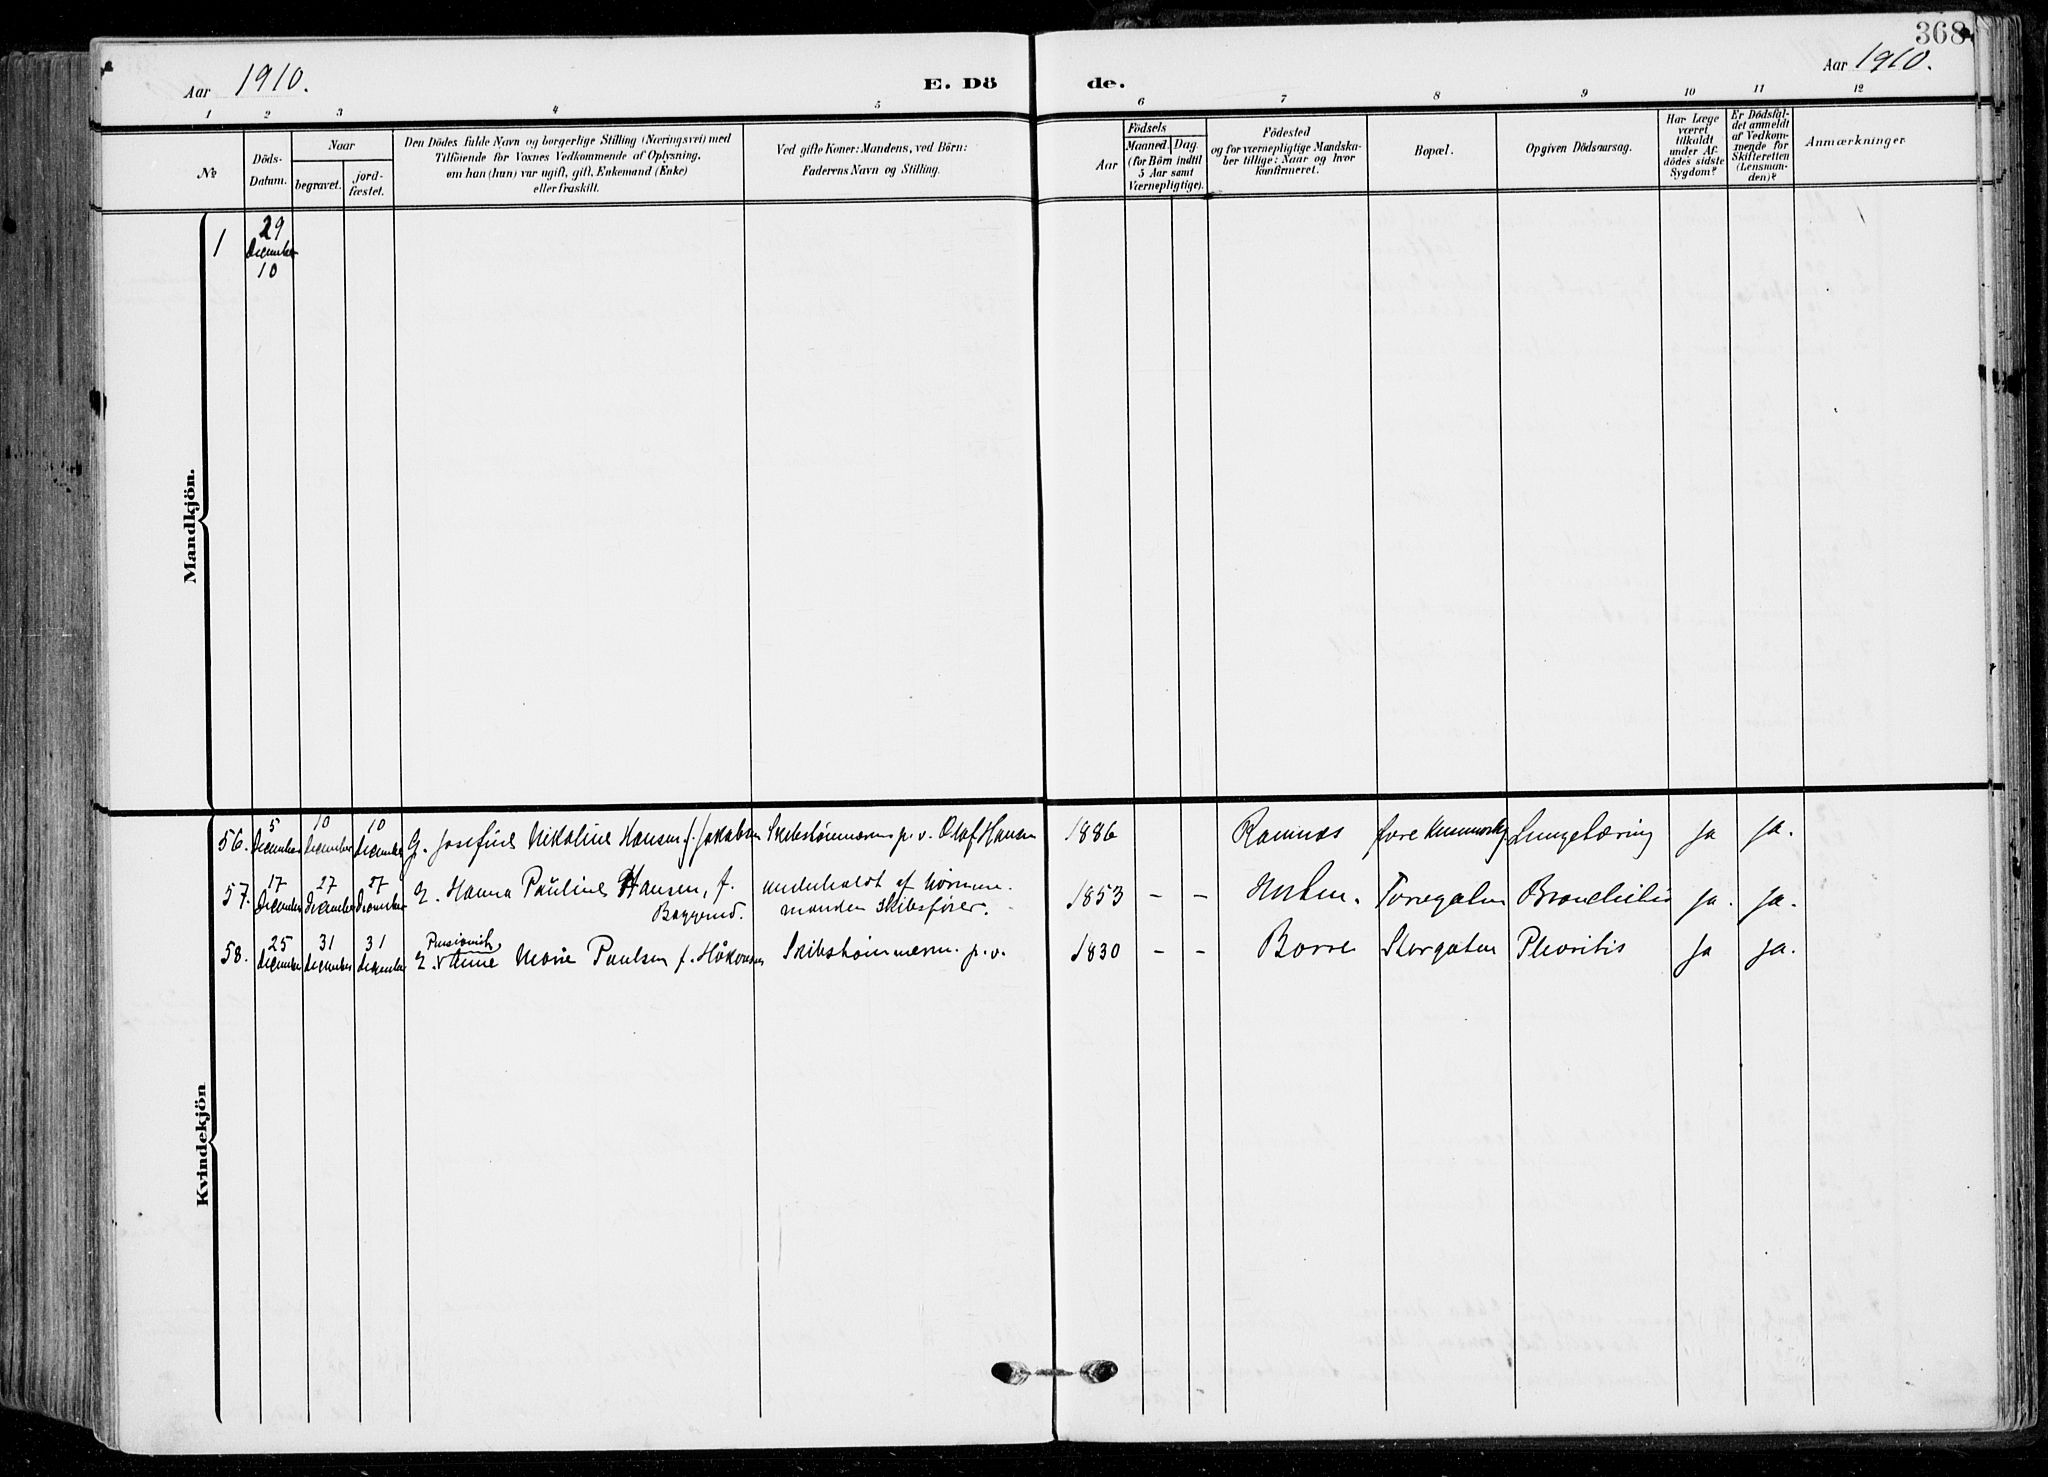 368
Aar 1910. E. Dö de. Aar 1910.
1 2 3 4 5 6 7 8 9 10 11 12
№
Döds-
Datum.
Naar
begravet. jord-
fæstet.
Den Dödes fulde Navn og borgerlige Stilling (Næringsvei) med
Tilföiende for Voxnes Vedkommende af Oplysning,
om han (hun) var ugift, gift, Enkemand (Enke)
eller fraskilt.
Ved gifte Koner: Mandens, ved Börn:
Faderens Navn og Stilling.
Födsels
Aar
Maaned. Dag.
(for Börn indtil
5 Aar samt
Værnepligtige).
Födested
og for værnepligtige Mandska-
ber tillige: Naar og hvor
konfirmeret.
Bopæl.
Opgiven Dödsaarsag.
Har Læge
været
tilkaldt
under Af-
dödes sidste
Sygdom?
Er Dödsfal-
det anmeldt
af Vedkom-
mende for
Skifteretten
(Lensman-
den)?
Anmærkninger
Mandkjön.
1 29
December
10
Kvindekjön
56. 5 December 10 December 10 December G. Josefine Nikoline Hansen f. Jakobsen Skibstømmerm p. v. Olaf Hansen 1886 Ramnes Lungetæring ja ja.
57. 17 December 27 December 27 December E. Hanna Pauline Hansen, f. underholdt af
manden skibsfører. 1853 – – Bronchitis ja. ja.
58. 25 December 31 December 31 December Pensionist,
E. v Anne Marie Paulsen f. Håkonsen Skibstømmerm. p. v. 1830 – – Borre Storgaten Pleoritis ja ja.